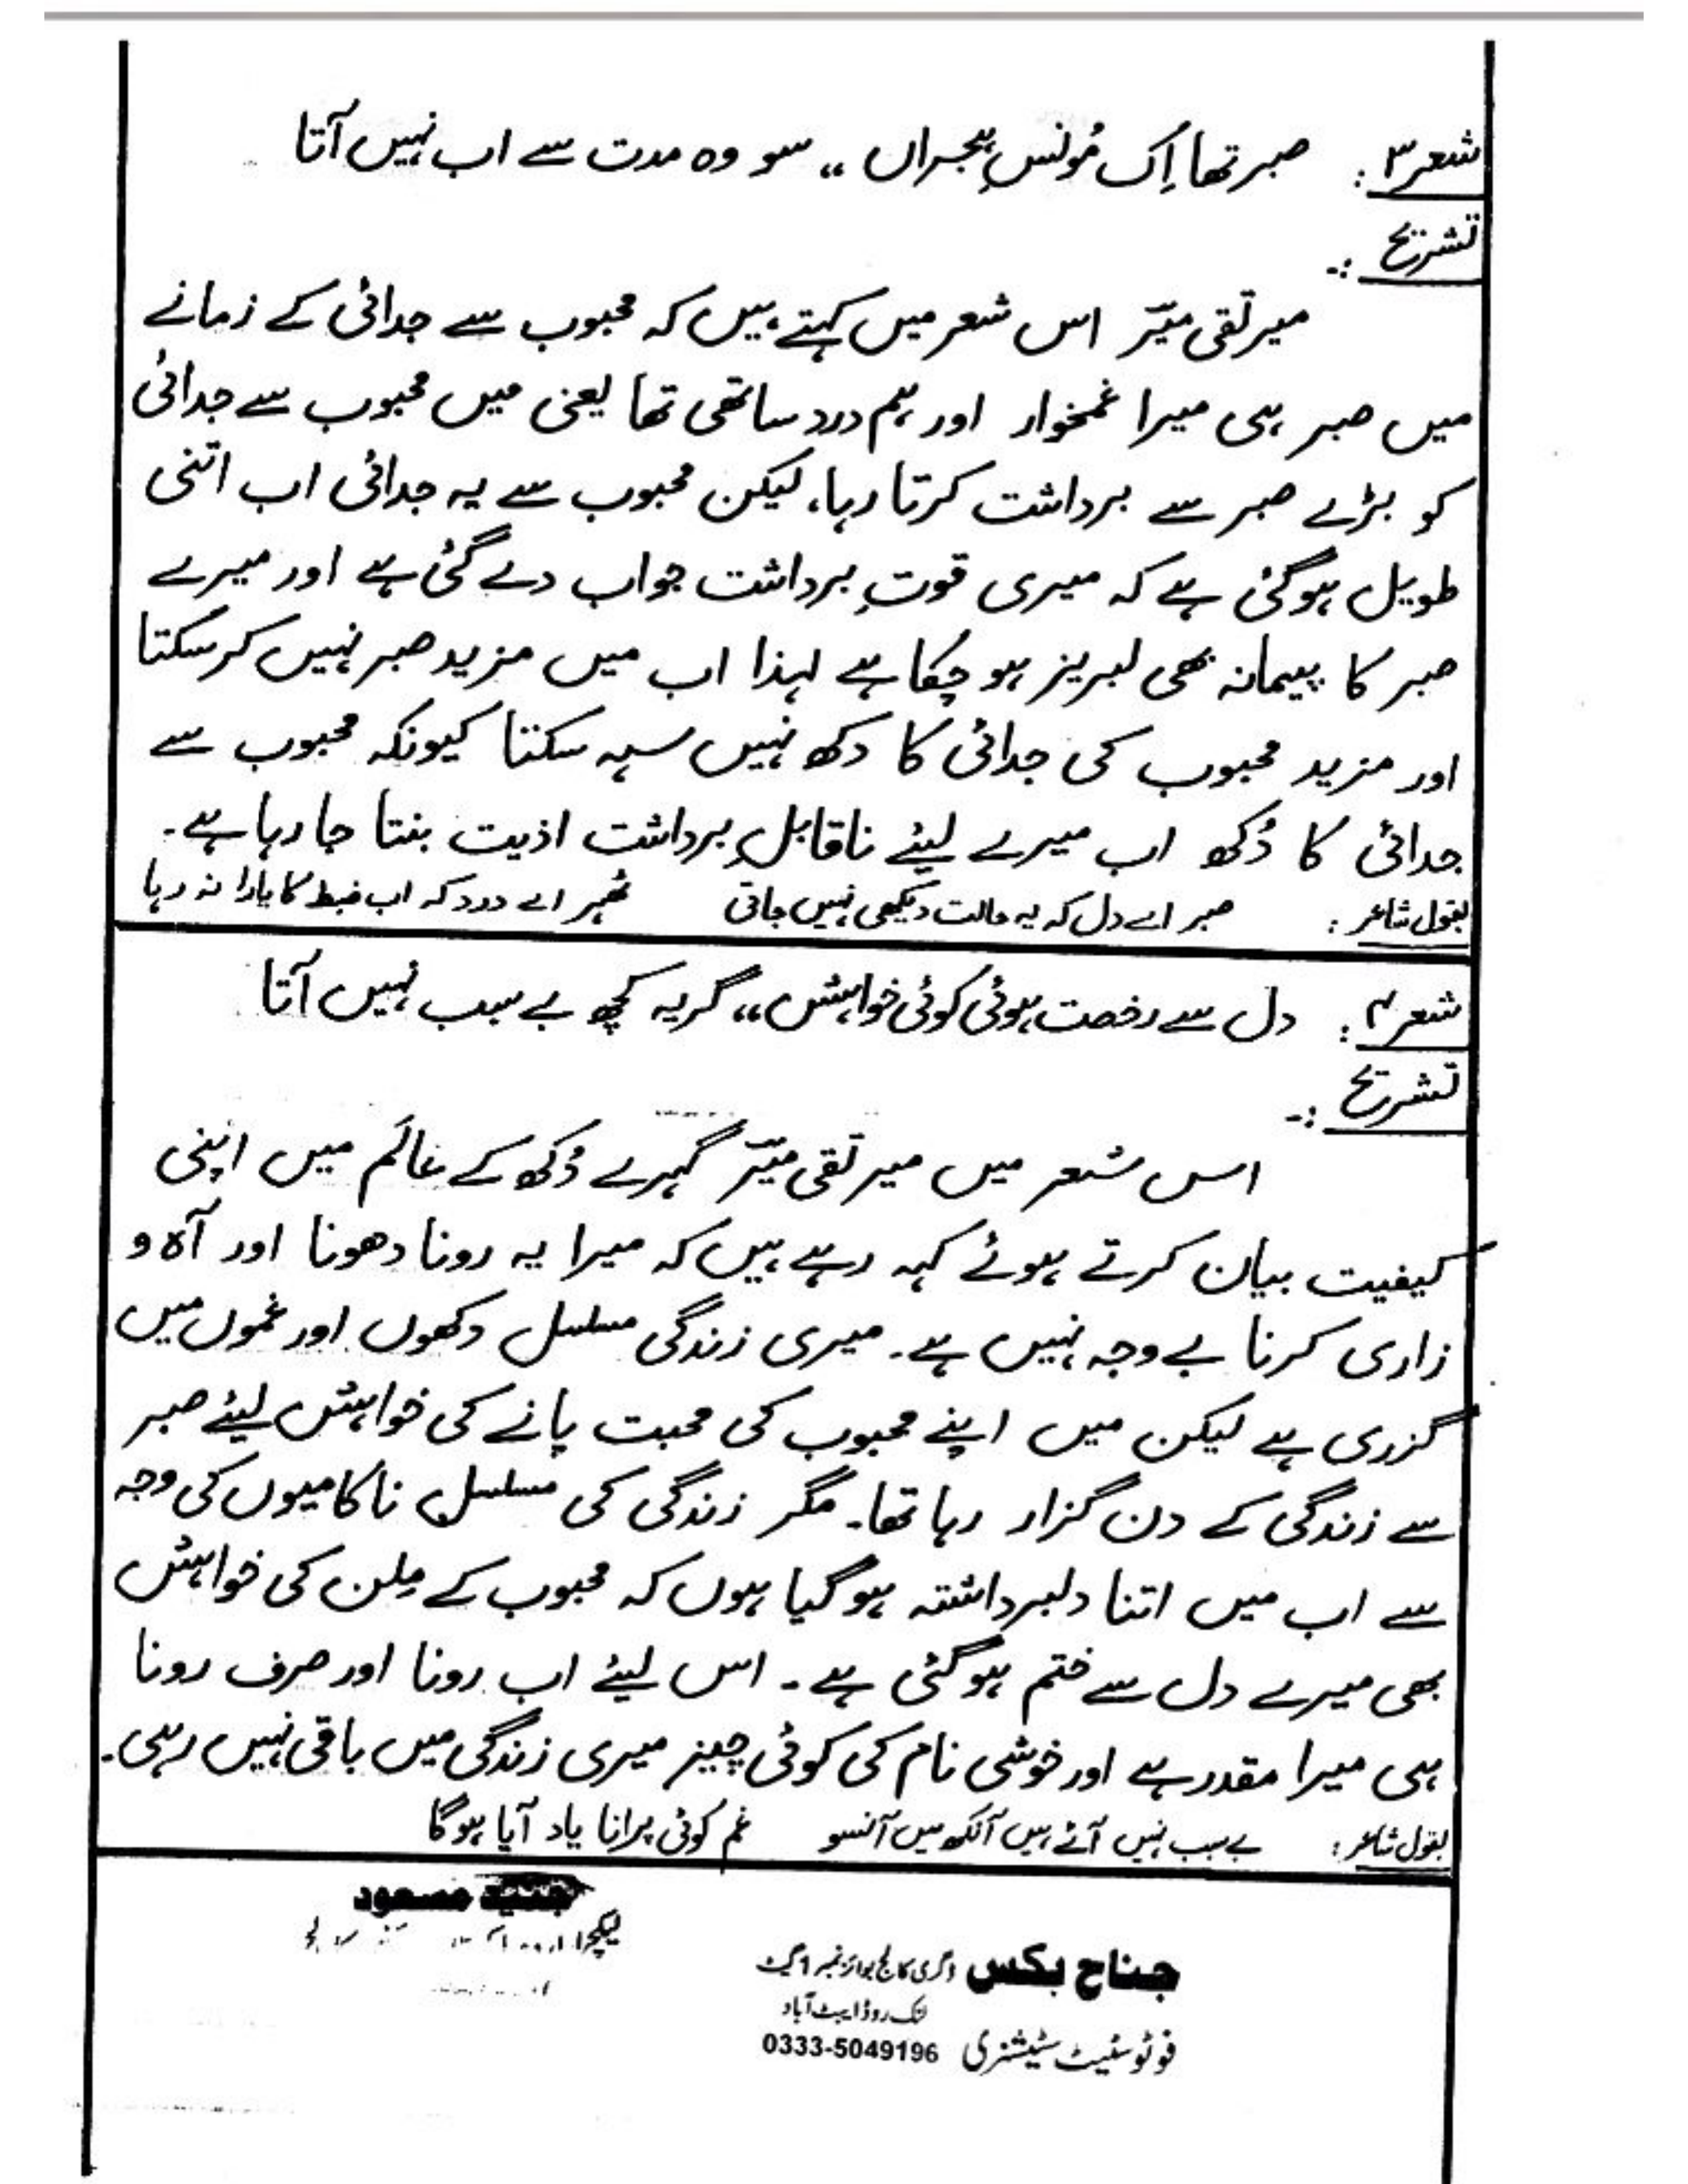 شعر ۳: صبر تھا اِک مُونسِ ہجراں ،، سو وہ مدت سے اب نہیں آتا
تشریح :-
میر تقی میرؔ اس شعر میں کہتے ہیں کہ محبوب سے جدائی کے زمانے
میں صبر ہی میرا غمخوار اور ہم درد ساتھی تھا یعنی میں محبوب سے جدائی
کو بڑے صبر سے برداشت کرتا رہا، لیکن محبوب سے یہ جدائی اب اتنی
طویل ہوگئی ہے کہ میری قوتِ برداشت جواب دے گئی ہے اور میرے
صبر کا پیمانہ بھی لبریز ہو چکا ہے لہذا اب میں مزید صبر نہیں کرسکتا
اور مزید محبوب کی جدائی کا دکھ نہیں سہہ سکتا کیونکہ محبوب سے
جدائی کا دُکھ اب میرے لیئے ناقابلِ برداشت اذیت بنتا جا رہا ہے۔
بقول شاعر: صبر اے دل کہ یہ حالت دیکھی نہیں جاتی ٹھہر اے درد کہ اب ضبط کا یارا نہ رہا
شعر ۴: دل سے رخصت ہوئی کوئی خواہش ،، گریہ کچھ بے سبب نہیں آتا
تشریح :-
اس شعر میں میر تقی میرؔ گہرے دُکھ کے عالَم میں اپنی
کیفیت بیان کرتے ہوئے کہہ رہے ہیں کہ میرا یہ رونا دھونا اور آہ و
زاری کرنا بے وجہ نہیں ہے۔ میری زندگی مسلسل دکھوں اور غموں میں
گزری ہے لیکن میں اپنے محبوب کی محبت پانے کی خواہش لیئے صبر
سے زندگی کے دن گزار رہا تھا۔ مگر زندگی کی مسلسل ناکامیوں کی وجہ
سے اب میں اتنا دلبرداشتہ ہوگیا ہوں کہ محبوب کے مِلن کی خواہش
بھی میرے دل سے ختم ہوگئی ہے۔ اس لیئے اب رونا اور صرف رونا
ہی میرا مقدر ہے اور خوشی نام کی کوئی چیز میری زندگی میں باقی نہیں رہی۔
بقول شاعر: بے سبب نہیں آئے ہیں آنکھ میں آنسو غم کوئی پرانا یاد آیا ہوگا
جنید مسعود
لیکچرار اردو
جناح بکس ڈگری کالج بوائز نمبر 1 گیٹ
لنک روڈ ایبٹ آباد
فوٹو سٹیٹ سٹیشنری 0333-5049196